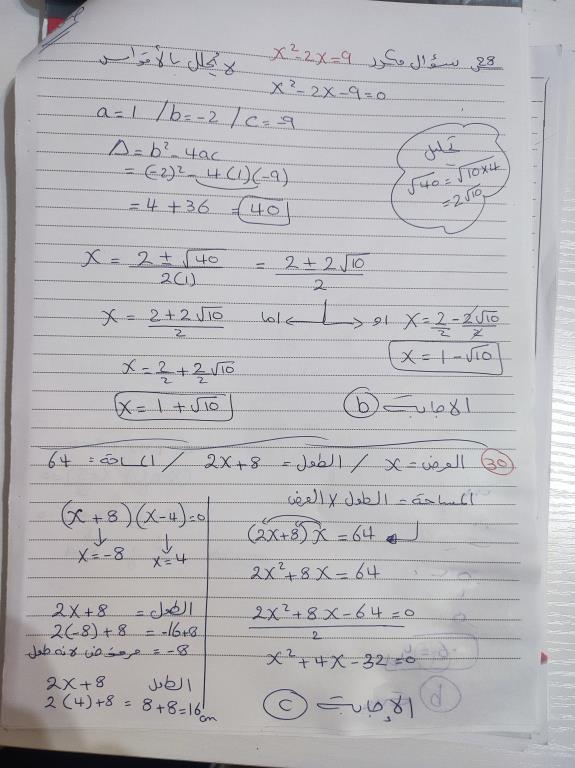 28 سؤال مكرر x²-2x=9 لا يحلل بالأقواس
x²-2x-9=0
a=1 / b=-2 / c=-9
Δ=b²-4ac
=(-2)²-4(1)(-9)
=4+36=40
تحليل
√40=√10×4
=2√10
x=2±√40/2(1) = 2±2√10/2
x=2+2√10/2 اما او x=2/2-2√10/2
x=1-√10
x=2/2+2/2√10
x=1+√10
الاجابة b
30 العرض=x / الطول=2x+8 / المساحة=64
المساحة=الطول×العرض
(2x+8)x=64
2x²+8x=64
2x²+8x-64=0
2
x²+4x-32=0
(x+8)(x-4)=0
x=-8 x=4
2x+8=الطول
2(-8)+8=-16+8
-8= مرفوض لانه طول
2x+8 الطول
2(4)+8=8+8=16cm
الإجابة c